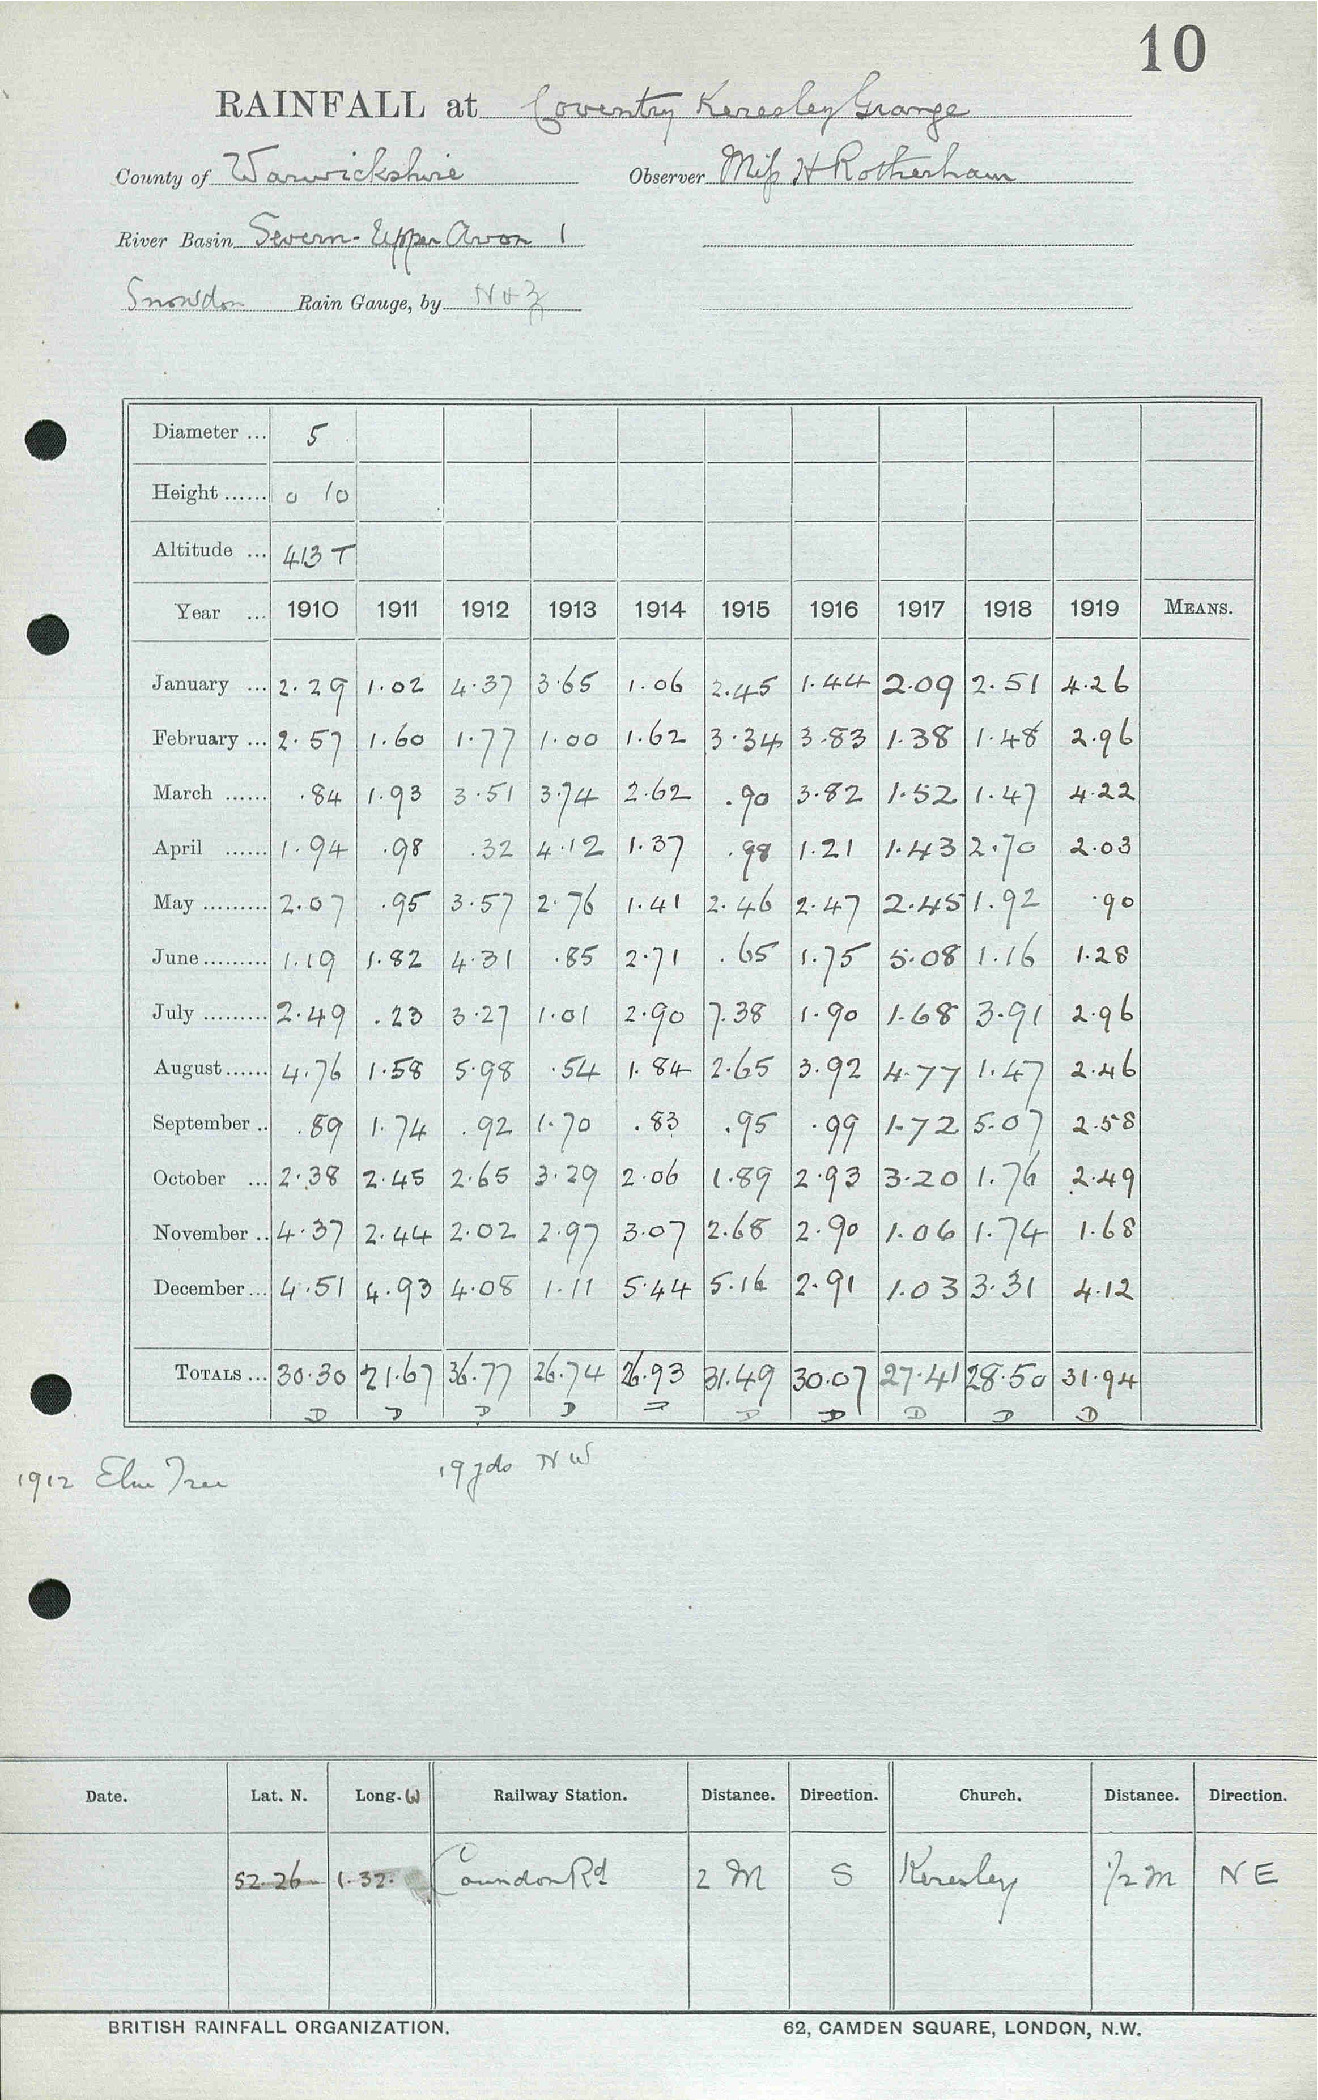 10
RAINFALL at Coventry Keresley Grange
County of Warwickshire Observer Miss H Rotherham
River Basin Severn-Upper Avon 1
Snowdon Rain Gauge, by N & Z
Diameter ... 5
Height ...... 0 10
Altitude ... 413 T
Year ... 1910 1911 1912 1913 1914 1915 1916 1917 1918 1919 MEANS.
January ... 2.29 1.02 4.37 3.65 1.06 2.45 1.44 2.09 2.51 4.26
February ... 2.57 1.60 1.77 1.00 1.62 3.34 3.83 1.38 1.48 2.96
March ...... .84 1.93 3.51 3.74 2.62 .90 3.82 1.52 1.47 4.22
April ...... 1.94 .98 .32 4.12 1.37 .98 1.21 1.43 2.70 2.03
May ......... 2.07 .95 3.57 2.76 1.41 2.46 2.47 2.45 1.92 .90
June ......... 1.19 1.82 4.31 .85 2.71 .65 1.75 5.08 1.16 1.28
July ......... 2.49 .23 3.27 1.01 2.90 7.38 1.90 1.68 3.91 2.96
August ...... 4.76 1.58 5.98 .54 1.84 2.65 3.92 4.77 1.47 2.46
September .. .89 1.74 .92 1.70 .83 .95 .99 1.72 5.07 2.58
October ... 2.38 2.45 2.65 3.29 2.06 1.89 2.93 3.20 1.76 2.49
November .. 4.37 2.44 2.02 2.97 3.07 2.68 2.90 1.06 1.74 1.68
December ... 4.51 4.93 4.08 1.11 5.44 5.16 2.91 1.03 3.31 4.12
TOTALS ... 30.30 21.67 36.77 26.74 26.93 31.49 30.07 27.41 28.50 31.94
D D D D D D D D D D
1912 Elm Tree 19yds NW
Date. Lat. N. Long. W Railway Station. Distance. Direction. Church. Distance. Direction.
52.26 1.32. Coundon Rd 2 M S Keresley 1/2 M NE
BRITISH RAINFALL ORGANIZATION. 62, CAMDEN SQUARE, LONDON, N.W.